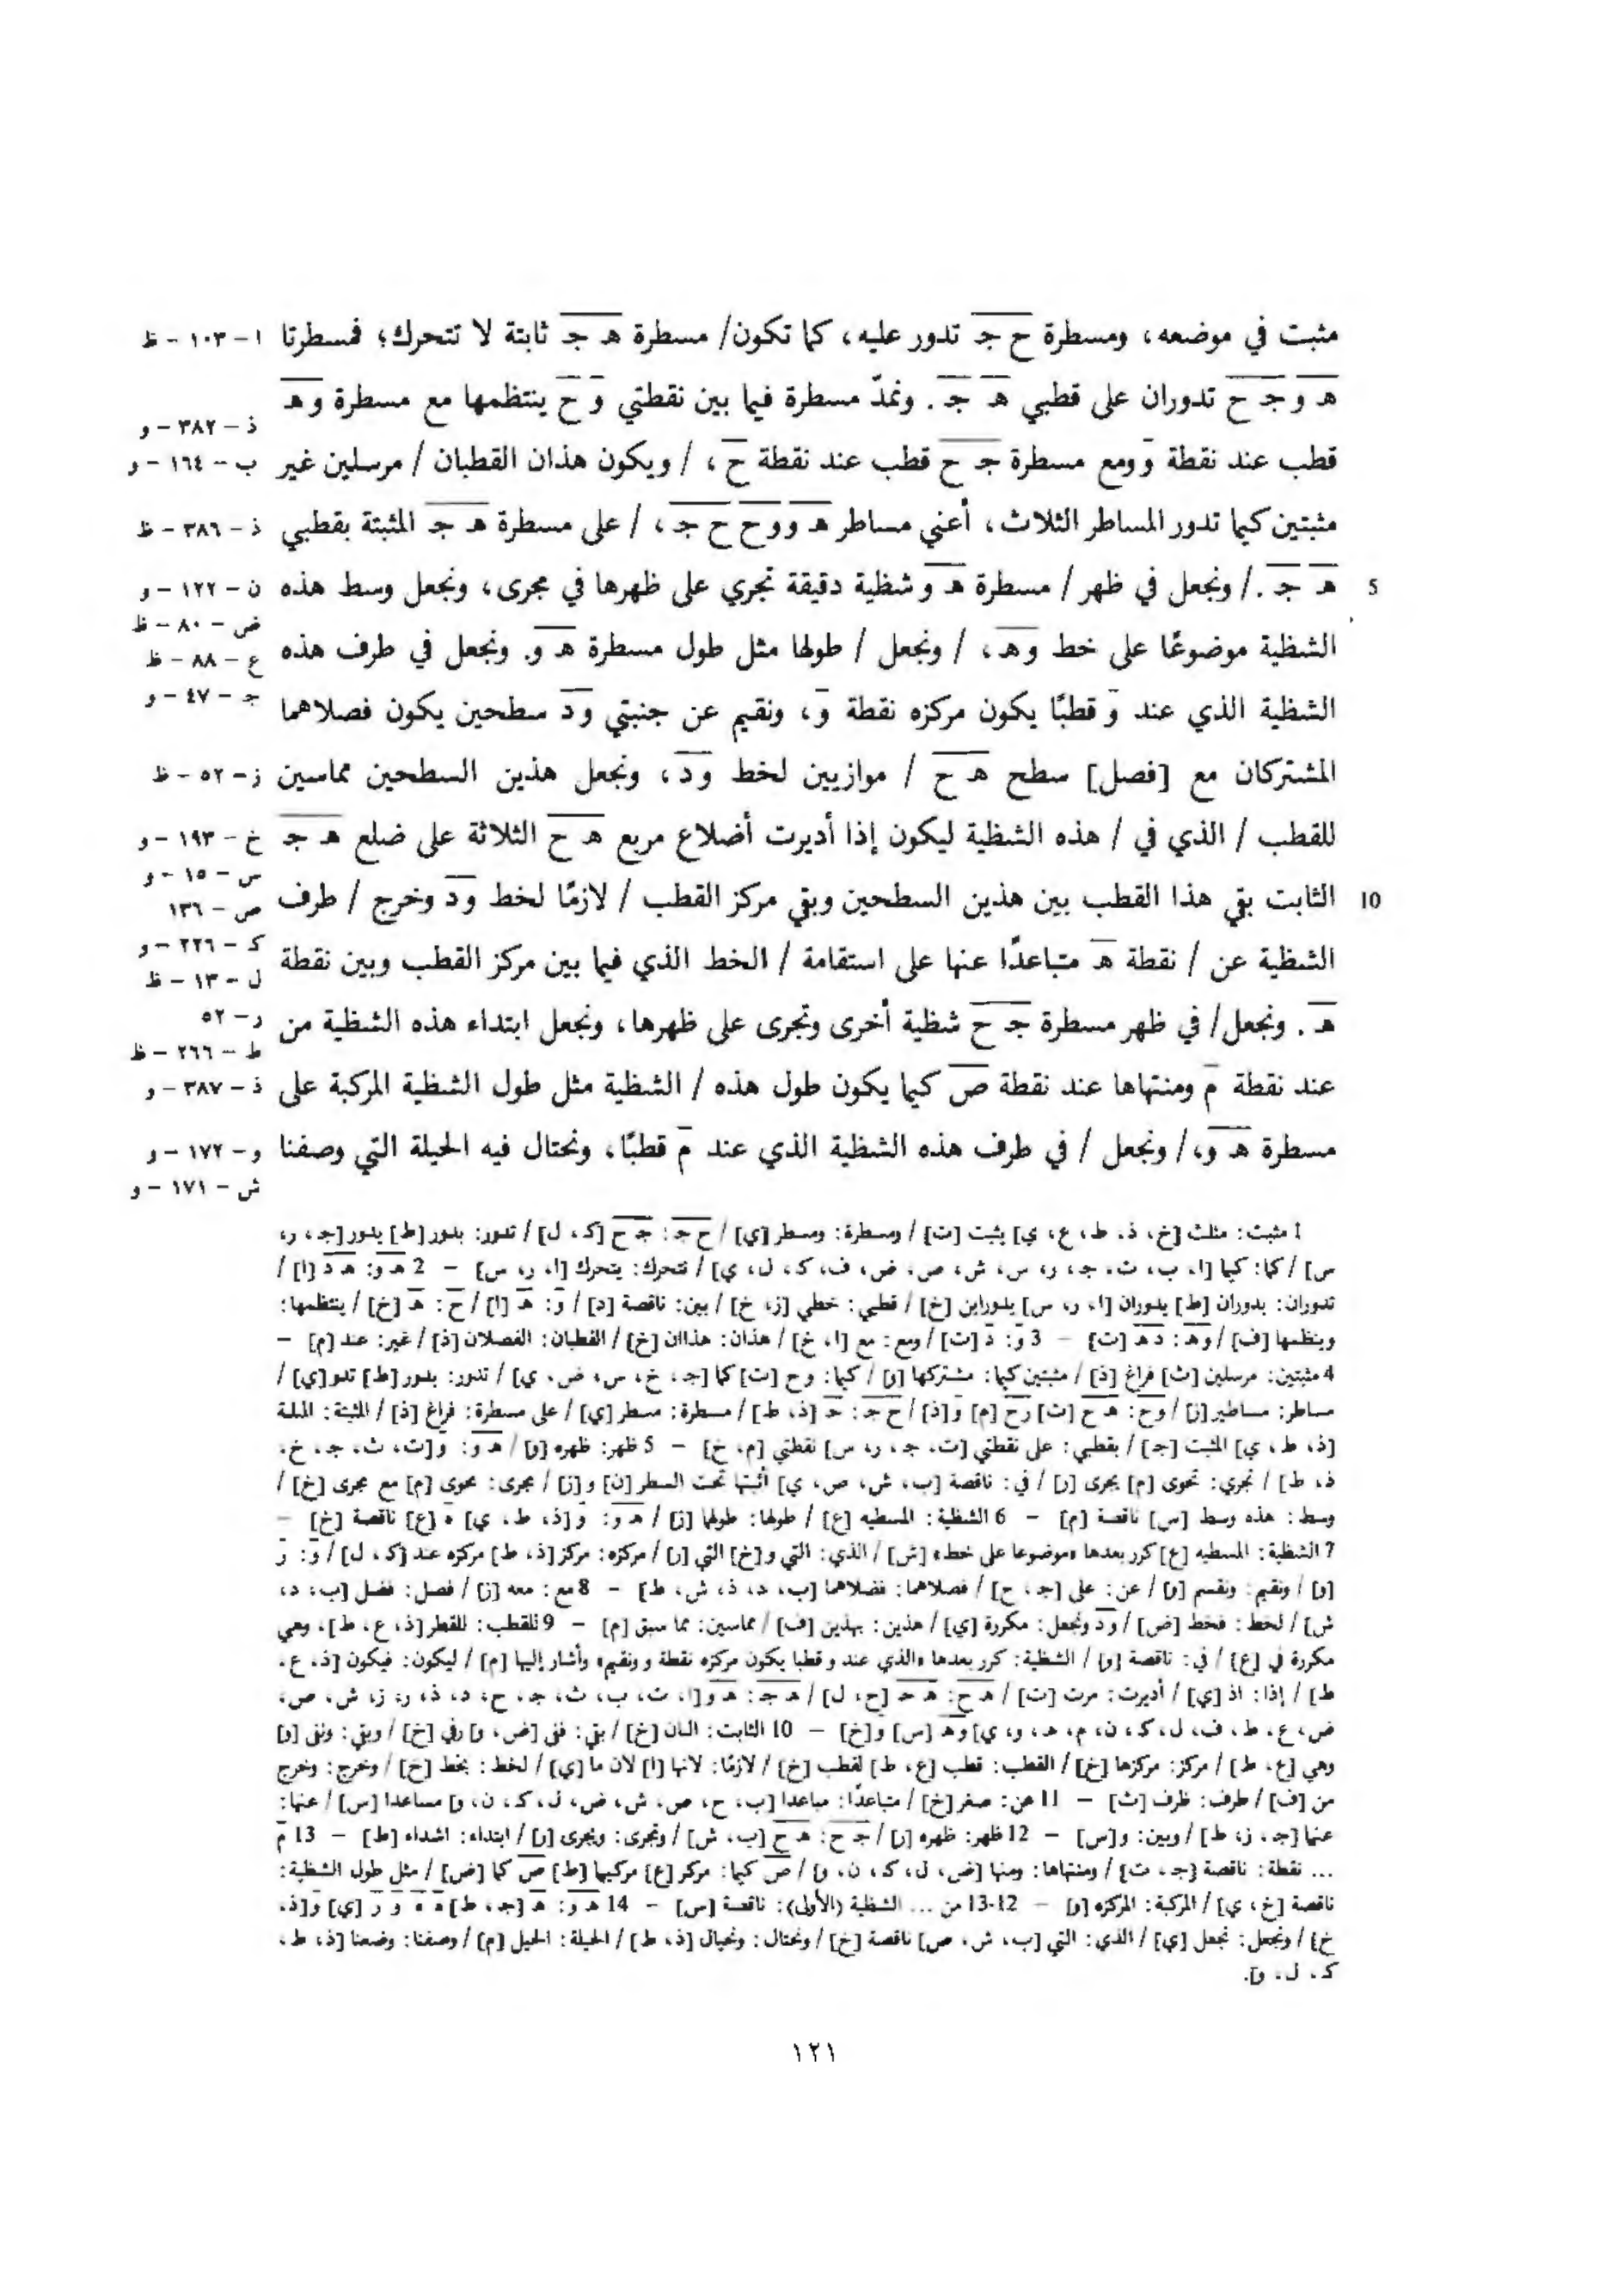 مثبت في موضعه، ومسطرة ح جـ تدور عليه، كما تكون/ مسطرة هـ جـ ثابتة لا تتحرك؛ فمسطرتا ا – ١٠٣ – ظ
هـ و جـ ح تدوران على قطبي هـ جـ. ونمدّ مسطرة فيما بين نقطتي و ح ينتظمها مع مسطرة و هـ
ذ – ٣٨٢ – و
قطب عند نقطة و ومع مسطرة جـ ح قطب عند نقطة ح، / ويكون هذان القطبان / مرسلين غير ب – ١٦٤ – و
مثبتين كيما تدور المساطر الثلاث، أعني مساطر هـ و وح ح جـ، / على مسطرة هـ جـ المثبتة بقطبي ذ – ٣٨٦ – ظ
5 هـ جـ. / ونجعل في ظهر / مسطرة هـ و شظية دقيقة تجري على ظهرها في مجرى، ونجعل وسط هذه ن – ١٢٢ – و
ض – ٨٠ – ظ
الشظية موضوعًا على خط و هـ، / ونجعل / طولها مثل طول مسطرة هـ و. ونجعل في طرف هذه ع – ٨٨ – ظ
جـ – ٤٧ – و
الشظية الذي عند و قطبًا يكون مركزه نقطة و، ونقيم عن جنبتي و د سطحين يكون فصلاهما
المشتركان مع [فصل] سطح هـ ح / موازيين لخط و د، ونجعل هذين السطحين مماسين ز – ٥٢ – ظ
للقطب / الذي في / هذه الشظية ليكون إذا أديرت أضلاع مربع هـ ح الثلاثة على ضلع هـ جـ خ – ١٩٣ – و
س – ١٥ – و
10 الثابت بقي هذا القطب بين هذين السطحين وبقي مركز القطب / لازمًا لخط و د وخرج / طرف ص – ١٣٦
كـ – ٢٢٦ – و
الشظية عن / نقطة هـ متباعدًا عنها على استقامة / الخط الذي فيما بين مركز القطب وبين نقطة ل – ١٣ – ظ
هـ. ونجعل/ في ظهر مسطرة جـ ح شظية أخرى وتجرى على ظهرها، ونجعل ابتداء هذه الشظية من ر – ٥٢
ط – ٢٦٦ – ظ
عند نقطة م ومنتهاها عند نقطة ص كيما يكون طول هذه / الشظية مثل طول الشظية المركبة على ذ – ٣٨٧ – و
مسطرة هـ و،/ ونجعل / في طرف هذه الشظية الذي عند م قطبًا، ونحتال فيه الحيلة التي وصفنا و – ١٧٢ – و
ش – ١٧١ – و
1 مثبت: مثلث [خ، ذ، ط، ع، ي] يثبت [ت] / ومسطرة: ومسطر [ي] / ح جـ: جـ ح [كـ، ل] / تدور: بدور [ط] يدور [جـ، ر،
س] / كما: كيما [ا، ب، ت، جـ، ر، س، ش، ص، ض، ف، كـ، ل، ي] / تتحرك: يتحرك [ا، ر، س] – 2 هـ و: هـ د [ا] /
تدوران: بدوران [ط] يدوران [ا، ر، س] يدوراين [خ] / قطبي: خطي [ز، خ] / بين: ناقصة [د] / و: هـ [ا] / ح: هـ [خ] / ينتظمها:
وينظمها [ف] / و هـ: د هـ [ت] – 3 و: د [ت] / ومع: مع [ا، خ] / هذان: هذاان [خ] / القطبان: الفصلان [ذ] / غير: عند [م] –
4 مثبتين: مرسلين [ث] فراغ [ذ] / مثبتين كيما: مشتركها [و] / كيما: وح [ت] كما [جـ، خ، س، ض، ي] / تدور: بدور [ط] تدو [ي] /
مساطر: مساطير [ز] / وح: هـ ح [ت] رح [م] و [ذ] / ح جـ: ح [ذ، ط] / مسطرة: مسطر [ي] / على مسطرة: فراغ [ذ] / المثبتة: المبلىة
[ذ، ط، ي] المثبت [جـ] / بقطبي: على نقطتي [ت، جـ، ر، س] نقطتي [م، خ] – 5 ظهر: ظهره [و] / هـ و: و [ت، ث، جـ، خ،
ذ، ط] / تجري: تحوى [م] يجرى [ر] / في: ناقصة [ب، ش، ص، ي] أثبتها تحت السطر [ن] و [ز] / مجرى: محوى [م] مع مجرى [خ] /
وسط: هذه وسط [س] ناقصة [م] – 6 الشظية: المسطيه [ع] / طولها: طولهما [ز] / هـ و: و [ذ، ط، ي] ه [ع] ناقصة [خ] –
7 الشظية: المسطيه [ع] كرر بعدها «موضوعا على خط» [ش] / الذي: التي و [خ] التي [ر] / مركزه: مركز [ذ، ط] مركزه عند [كـ، ل] / و: ر
[و] / ونقيم: ونقسم [و] / عن: على [جـ، ح] / فصلاهما: فضلاهما [ب، د، ذ، ش، ط] – 8 مع: معه [ز] / فصل: فضل [ب، د،
ش] / لخط: فخط [ض] / و د ونجعل: مكررة [ي] / هذين: بهذين [ف] / مماسين: مما سبق [م] – 9 للقطب: للقطر [ذ، ع، ط]، وهي
مكررة في [ع] / في: ناقصة [و] / الشظية: كرر بعدها «الذي عند و قطبا يكون مركزه نقطة و ونقيم» وأشار إليها [م] / ليكون: فيكون [ذ، ع،
ط] / إذا: اذ [ي] / أديرت: مرت [ت] / هـ ح: هـ حـ [ح، ل] / هـ جـ: هـ و [ا، ت، ب، ث، جـ، ح، د، ذ، ر، ز، ش، ص،
ض، ع، ط، ف، ل، كـ، ن، م، هـ، و، ي] و هـ [س] و [خ] – 10 الثابت: الىان [خ] / بقي: فقى [ض، و] رفي [خ] / وبقي: ونقى [و]
وهي [ع، ط] / مركز: مركزها [خ] / القطب: قطب [ع، ط] لقطب [خ] / لازمًا: لانها [ا] لان ما [ي] / لخط: بخط [خ] / وخرج: وخرج
من [ف] / طرف: ظرف [ث] – 11 عن: صغر [خ] / متباعدًا: مباعدا [ب، ح، ص، ش، ض، ل، كـ، ن، و] مساعدا [س] / عنها:
عنما [جـ، ز، ط] / وبين: و [س] – 12 ظهر: ظهره [ر] / جـ ح: هـ ح [ب، ش] / وتجرى: ويجرى [ر] / ابتداء: اشداء [ط] – 13 م
... نقطة: ناقصة [جـ، ت] / ومنتهاها: ومنها [ض، ل، كـ، ن، و] / ص كيما: مركز [ع] مركيها [ط] ص كما [ض] / مثل طول الشظية:
ناقصة [خ، ي] / المركبة: المركزه [و] – 12-13 من ... الشظية (الأولى): ناقصة [س] – 14 هـ و: هـ [جـ، ط]
خ] / ونجعل: نجعل [ي] / الذي: التي [ب، ش، ص] ناقصة [خ] / ونحتال: ونحيال [ذ، ط] / الحيلة: الحيل [م] / وصفنا: وضعنا [ذ، ط،
كـ، ل، و].
١٢١